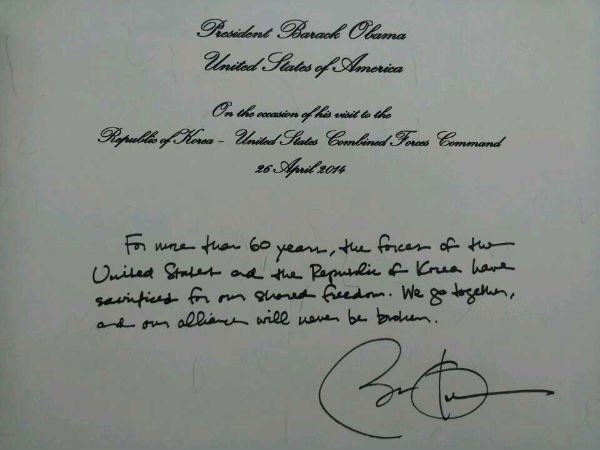 President Barack Obama
United States of America
On the occasion of his visit to the
Republic of Korea - United States Combined Forces Command
26 April 2014
For more than 60 years, the forces of the
United States and the Republic of Korea have
sacrificed for our shared freedom. We go together,
and our alliance will never be broken.